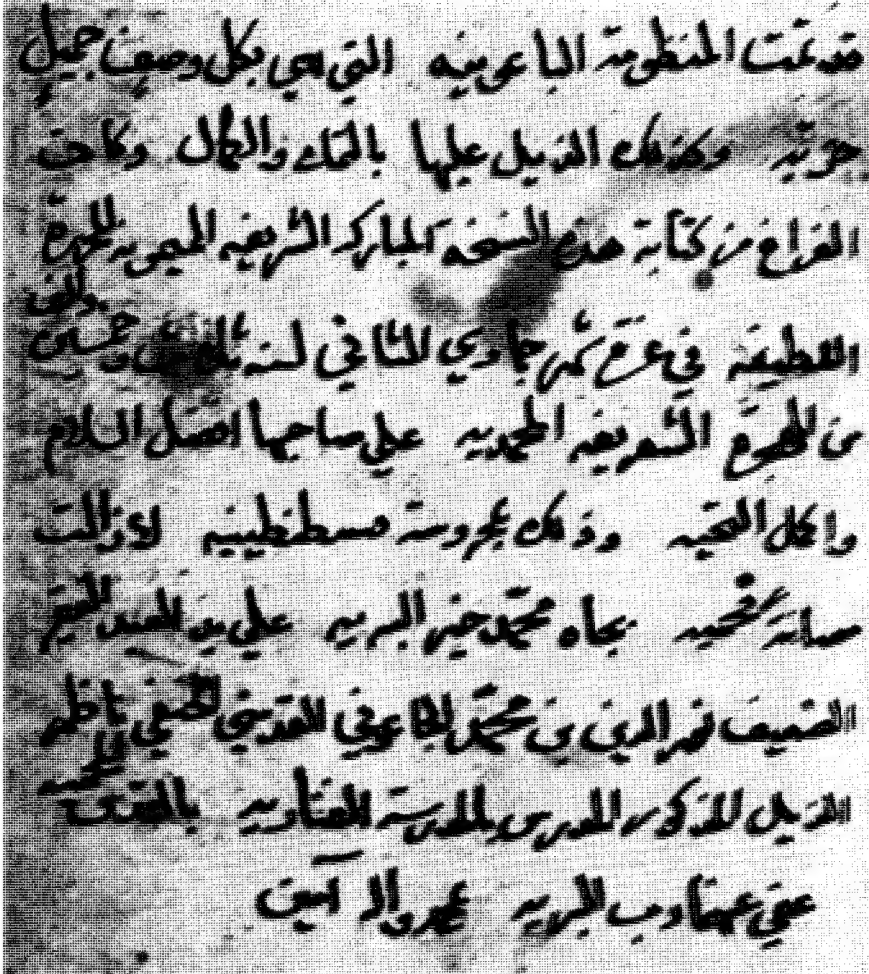 قد تمت المنظومة الباعونيه التي هي بكل وصف جميل
حريّه وكذلك الذيل عليها بالتمام والكمال وكان
الفراغ من كتابة هذه النسخة المباركة الشريفه الميمونه المحررة
اللطيفه في غرة شهر جمادي الثاني لسنه ثلاث وخمسين والف
من الهجرة الشريفه المحمديه علي صاحبها افضل السلام
واكمل التحيه وذلك بمحروسة قسطنطينيه لازالت
محميه بجاه محمد خير البريه علي يد العبد الفقير
الضعيف فخر الدين بن محمد القدسي الحنفي ناظم
الذيل المذكور المدرس بالمدرسة بالقدس المحميه
عفي عنهما رب البريه بمحمد واله امين